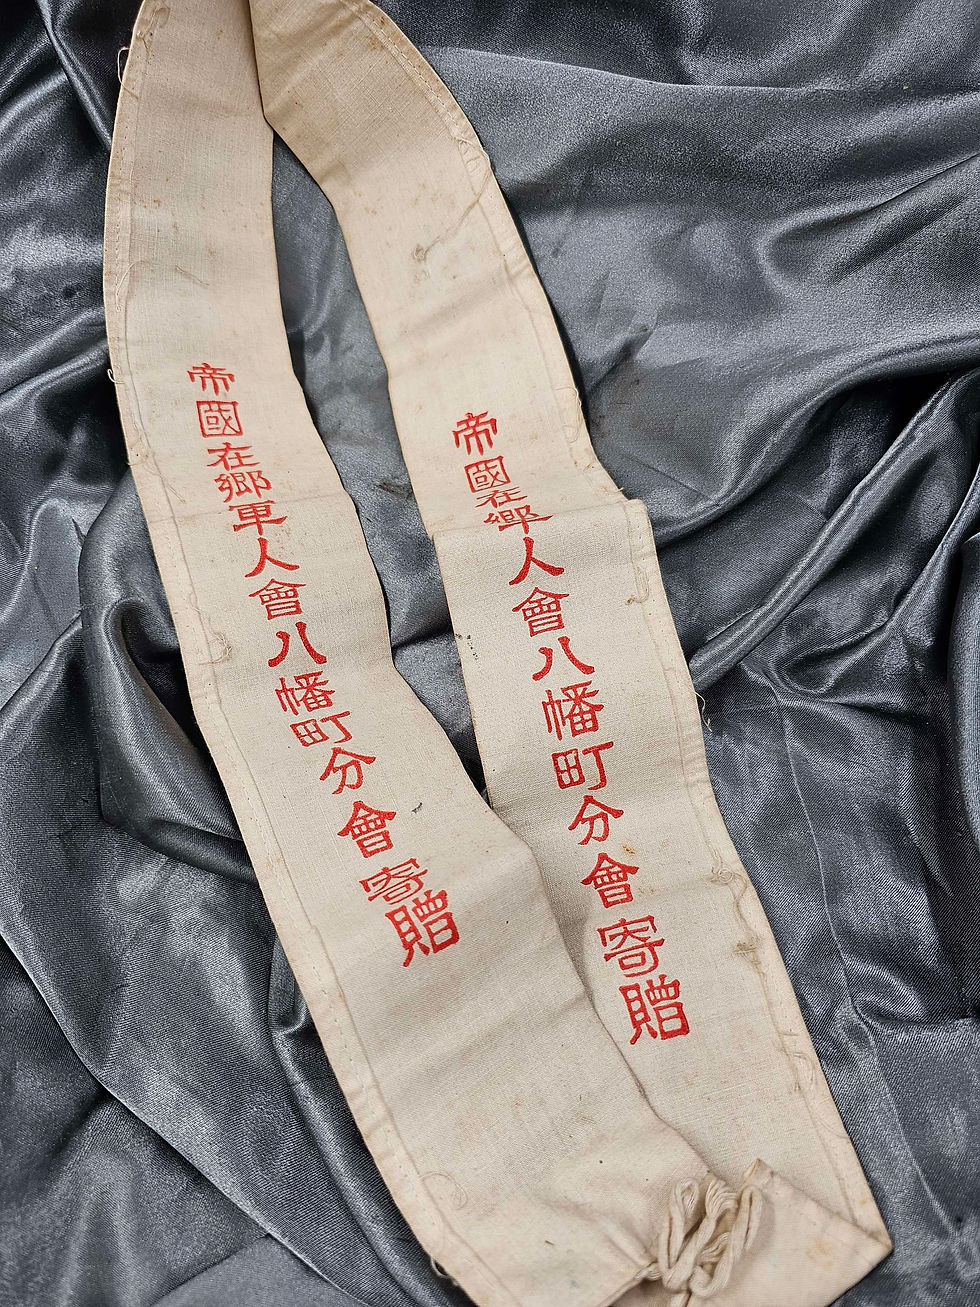 帝國在郷軍人會八幡町分會寄贈
帝國在郷軍人會八幡町分會寄贈